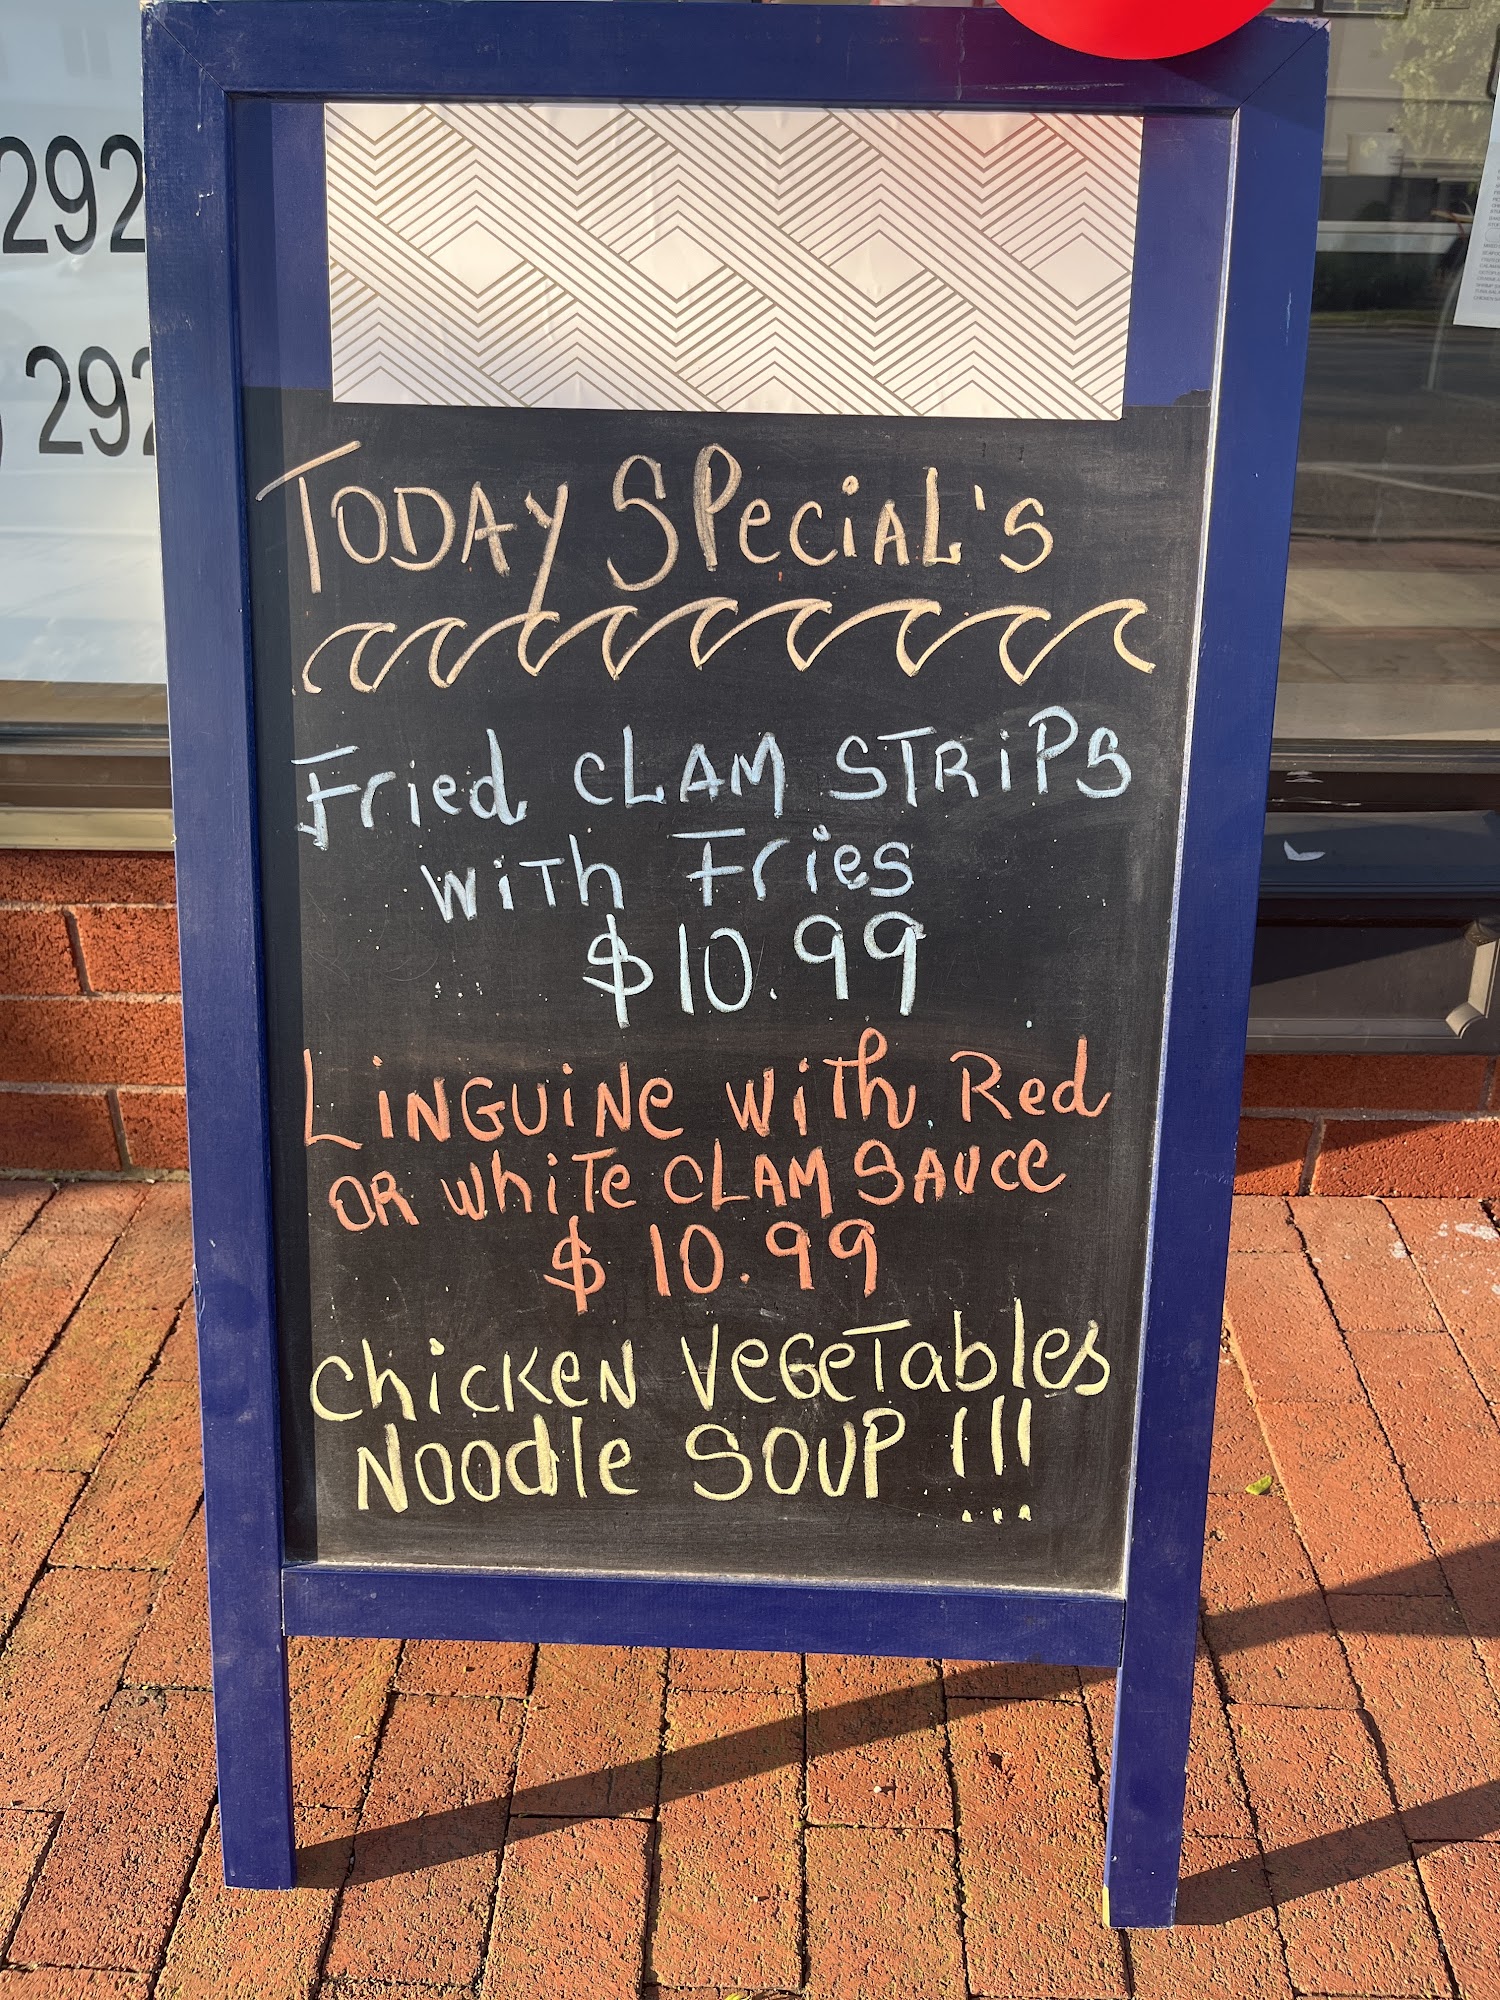 292
292
Today Special's
Fried Clam Strips
with Fries
$10.99
Linguine with Red
or white clam sauce
$10.99
Chicken Vegetables
Noodle Soup !!!